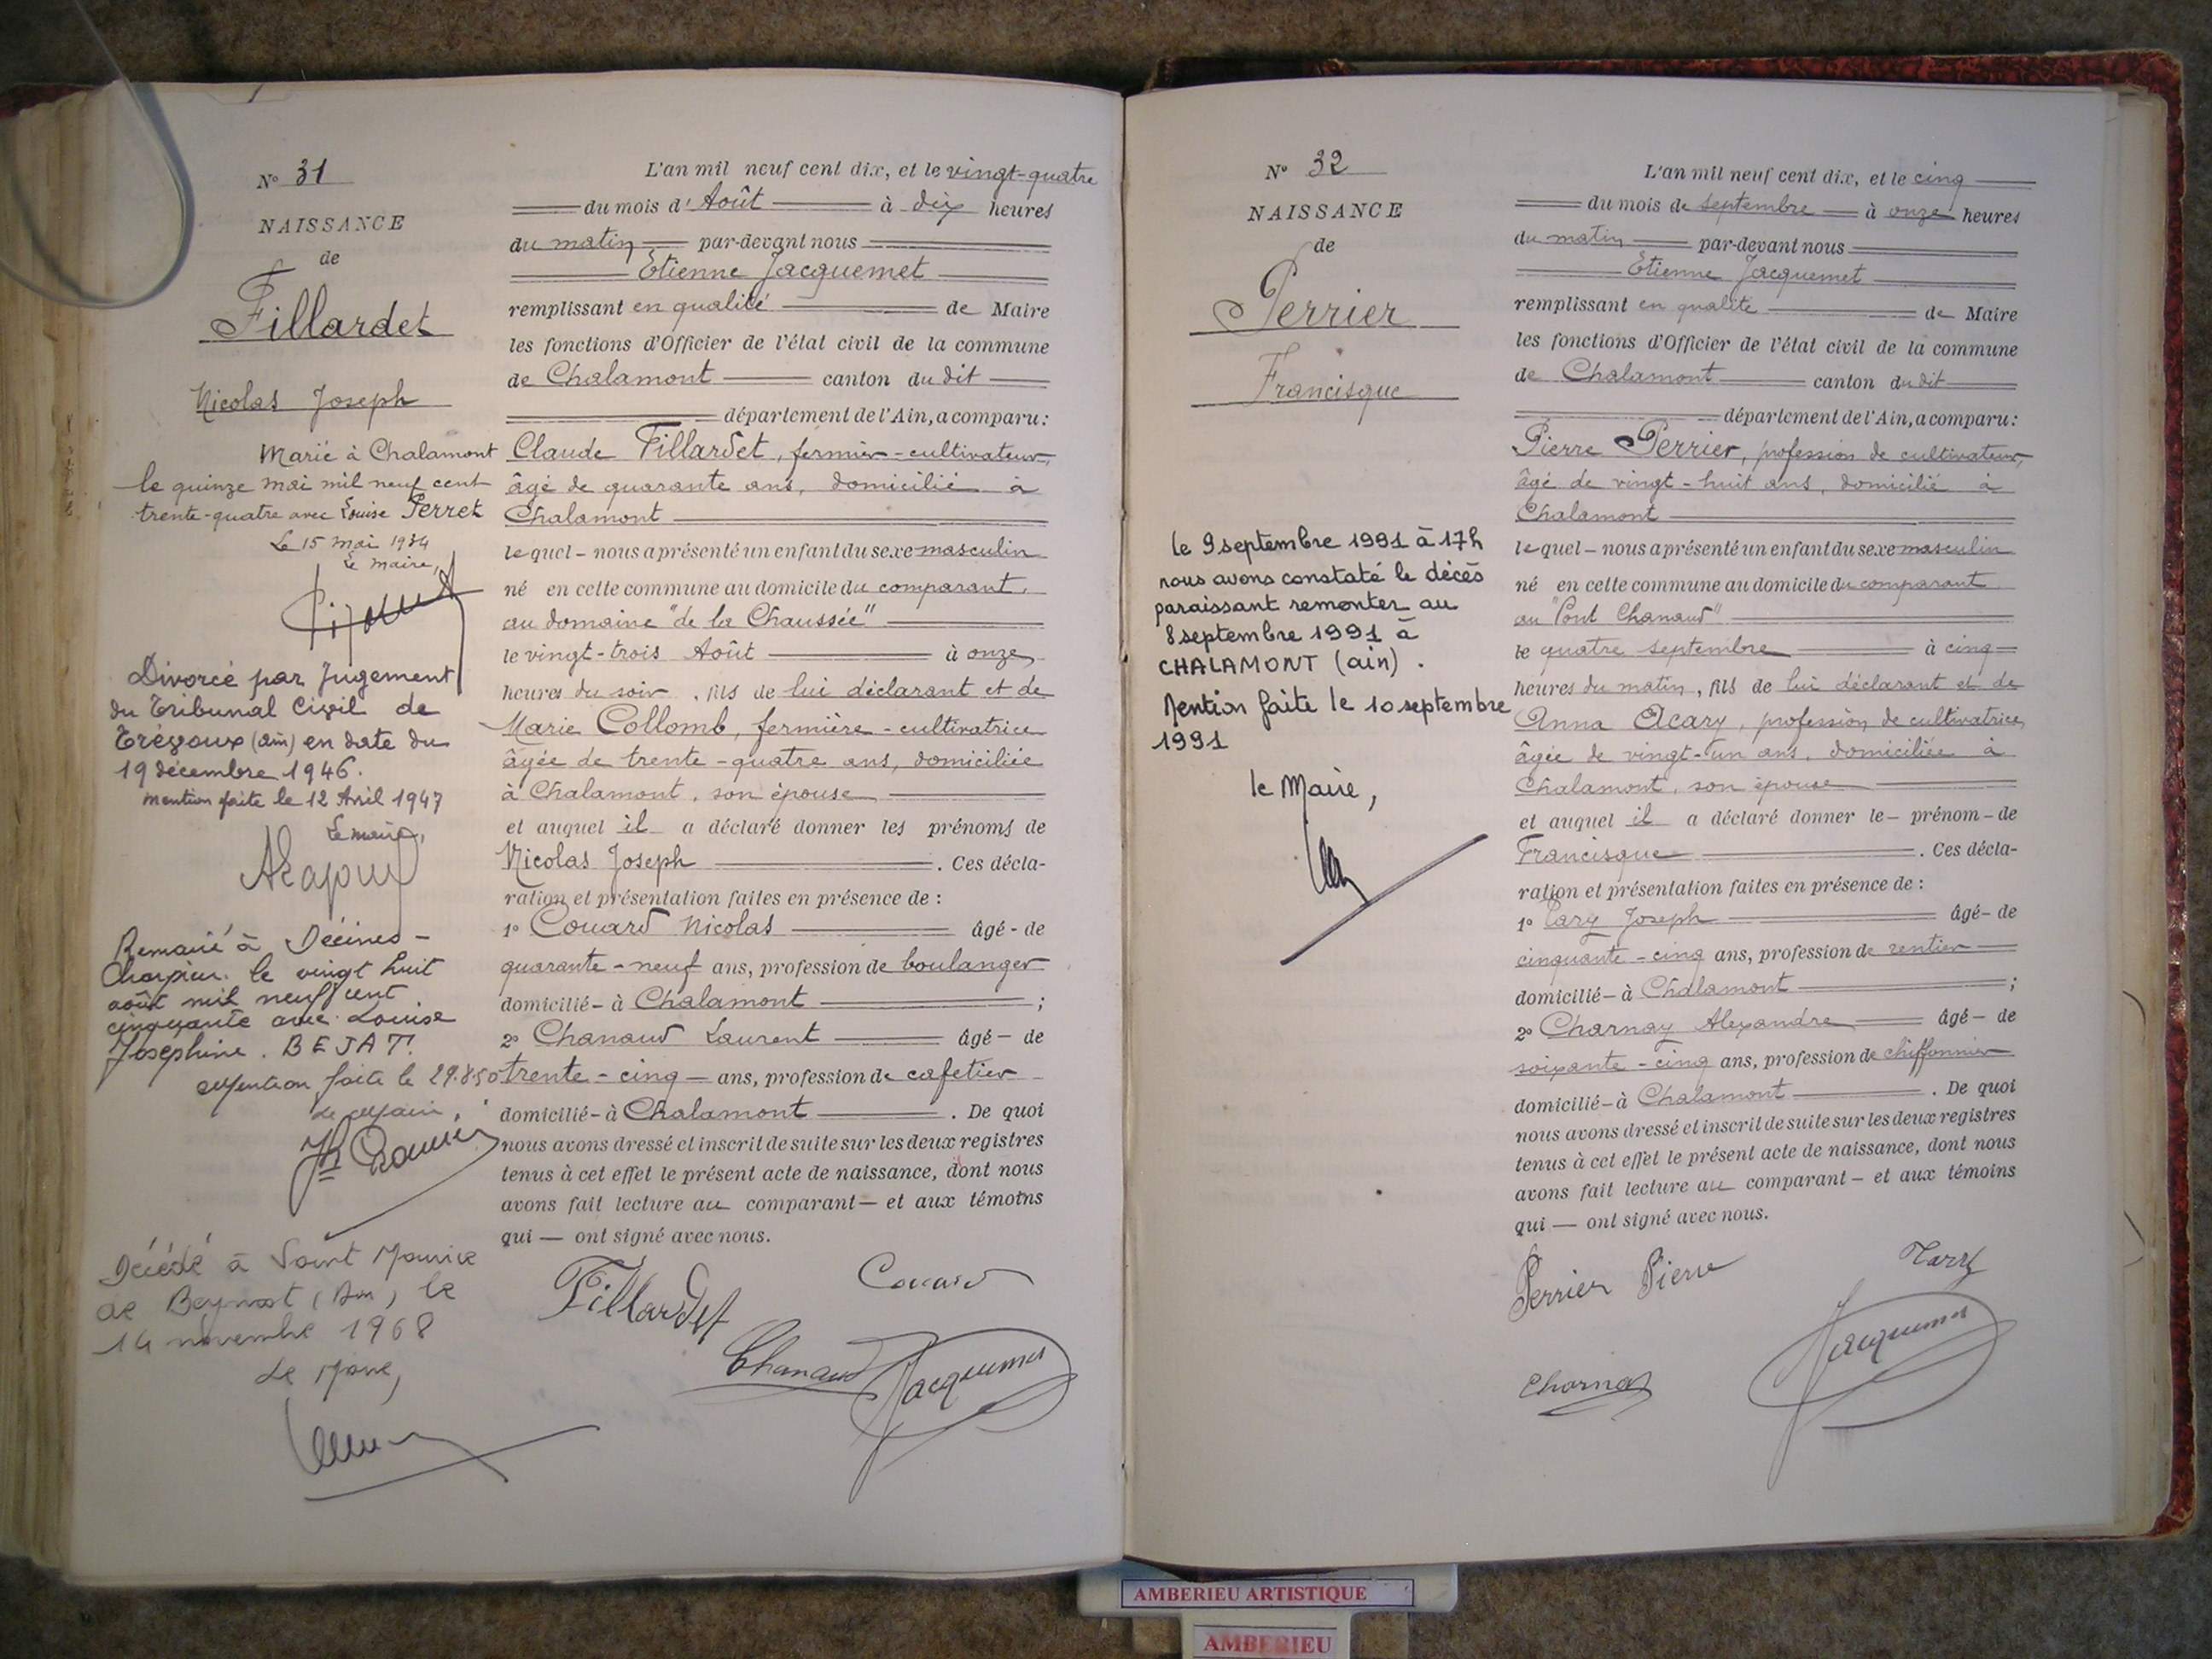 N° 31
NAISSANCE
de
Fillardet
Nicolas Joseph
Marié à Chalamont
le quinze mai mil neuf cent
trente-quatre avec Louise Perret
Le 15 mai 1934
Le maire,
Divorcé par Jugement
du Tribunal Civil de
Trévoux (Ain) en date du
19 décembre 1946.
Mention faite le 12 Avril 1947
Le maire,
Remarié à Décines-
Charpieu le vingt huit
août mil neuf cent
cinquante avec Louise
Joséphine. BEJAT.
Mention faite le 29.8.50
Le Maire,
Décédé à Saint Maurice
de Beynost (Ain) le
14 novembre 1968
Le Maire,
L'an mil neuf cent dix, et le vingt-quatre
du mois d'Août à dix heures
du matin par-devant nous
Etienne Jacquemet
remplissant en qualité de Maire
les fonctions d'Officier de l'état civil de la commune
de Chalamont canton du dit
département de l'Ain, a comparu:
Claude Fillardet, fermier-cultivateur,
âgé de quarante ans, domicilié à
Chalamont
lequel - nous a présenté un enfant du sexe masculin
né en cette commune au domicile du comparant,
au domaine "de la Chaussée"
le vingt-trois Août à onze
heures du soir, fils de lui déclarant et de
Marie Collomb, fermière-cultivatrice
âgée de trente-quatre ans, domiciliée
à Chalamont, son épouse
et auquel il a déclaré donner les prénoms de
Nicolas Joseph. Ces décla-
ration et présentation faites en présence de :
1° Couard Nicolas âgé - de
quarante-neuf ans, profession de boulanger
domicilié - à Chalamont ;
2° Chanaud Laurent âgé - de
trente-cinq - ans, profession de cafetier
domicilié - à Chalamont. De quoi
nous avons dressé et inscrit de suite sur les deux registres
tenus à cet effet le présent acte de naissance, dont nous
avons fait lecture au comparant - et aux témoins
qui — ont signé avec nous.
Fillardet Couard
Chanaud Jacquemet
N° 32
NAISSANCE
de
Perrier
Francisque
le 9 septembre 1991 à 17h
nous avons constaté le décès
paraissant remonter au
8 septembre 1991 à
CHALAMONT (ain).
Mention faite le 10 septembre
1991
le Maire,
L'an mil neuf cent dix, et le cinq
du mois de septembre à onze heures
du matin par-devant nous
Etienne Jacquemet
remplissant en qualité de Maire
les fonctions d'Officier de l'état civil de la commune
de Chalamont canton du dit
département de l'Ain, a comparu:
Pierre Perrier, profession de cultivateur,
âgé de vingt-huit ans, domicilié à
Chalamont
lequel - nous a présenté un enfant du sexe masculin
né en cette commune au domicile du comparant
au "Pont Chanaud"
le quatre septembre à cinq
heures du matin, fils de lui déclarant et de
Anna Acary, profession de cultivatrice,
âgée de vingt-un ans, domiciliée à
Chalamont, son épouse
et auquel il a déclaré donner le - prénom - de
Francisque. Ces décla-
ration et présentation faites en présence de :
1° Joseph âgé - de
cinquante-cinq ans, profession de rentier
domicilié - à Chalamont ;
2° Charnay Alexandre âgé - de
soixante-cinq ans, profession de chiffonnier
domicilié - à Chalamont. De quoi
nous avons dressé et inscrit de suite sur les deux registres
tenus à cet effet le présent acte de naissance, dont nous
avons fait lecture au comparant - et aux témoins
qui — ont signé avec nous.
Perrier Pierre
Charnay Jacquemet
AMBERIEU ARTISTIQUE
AMBERIEU